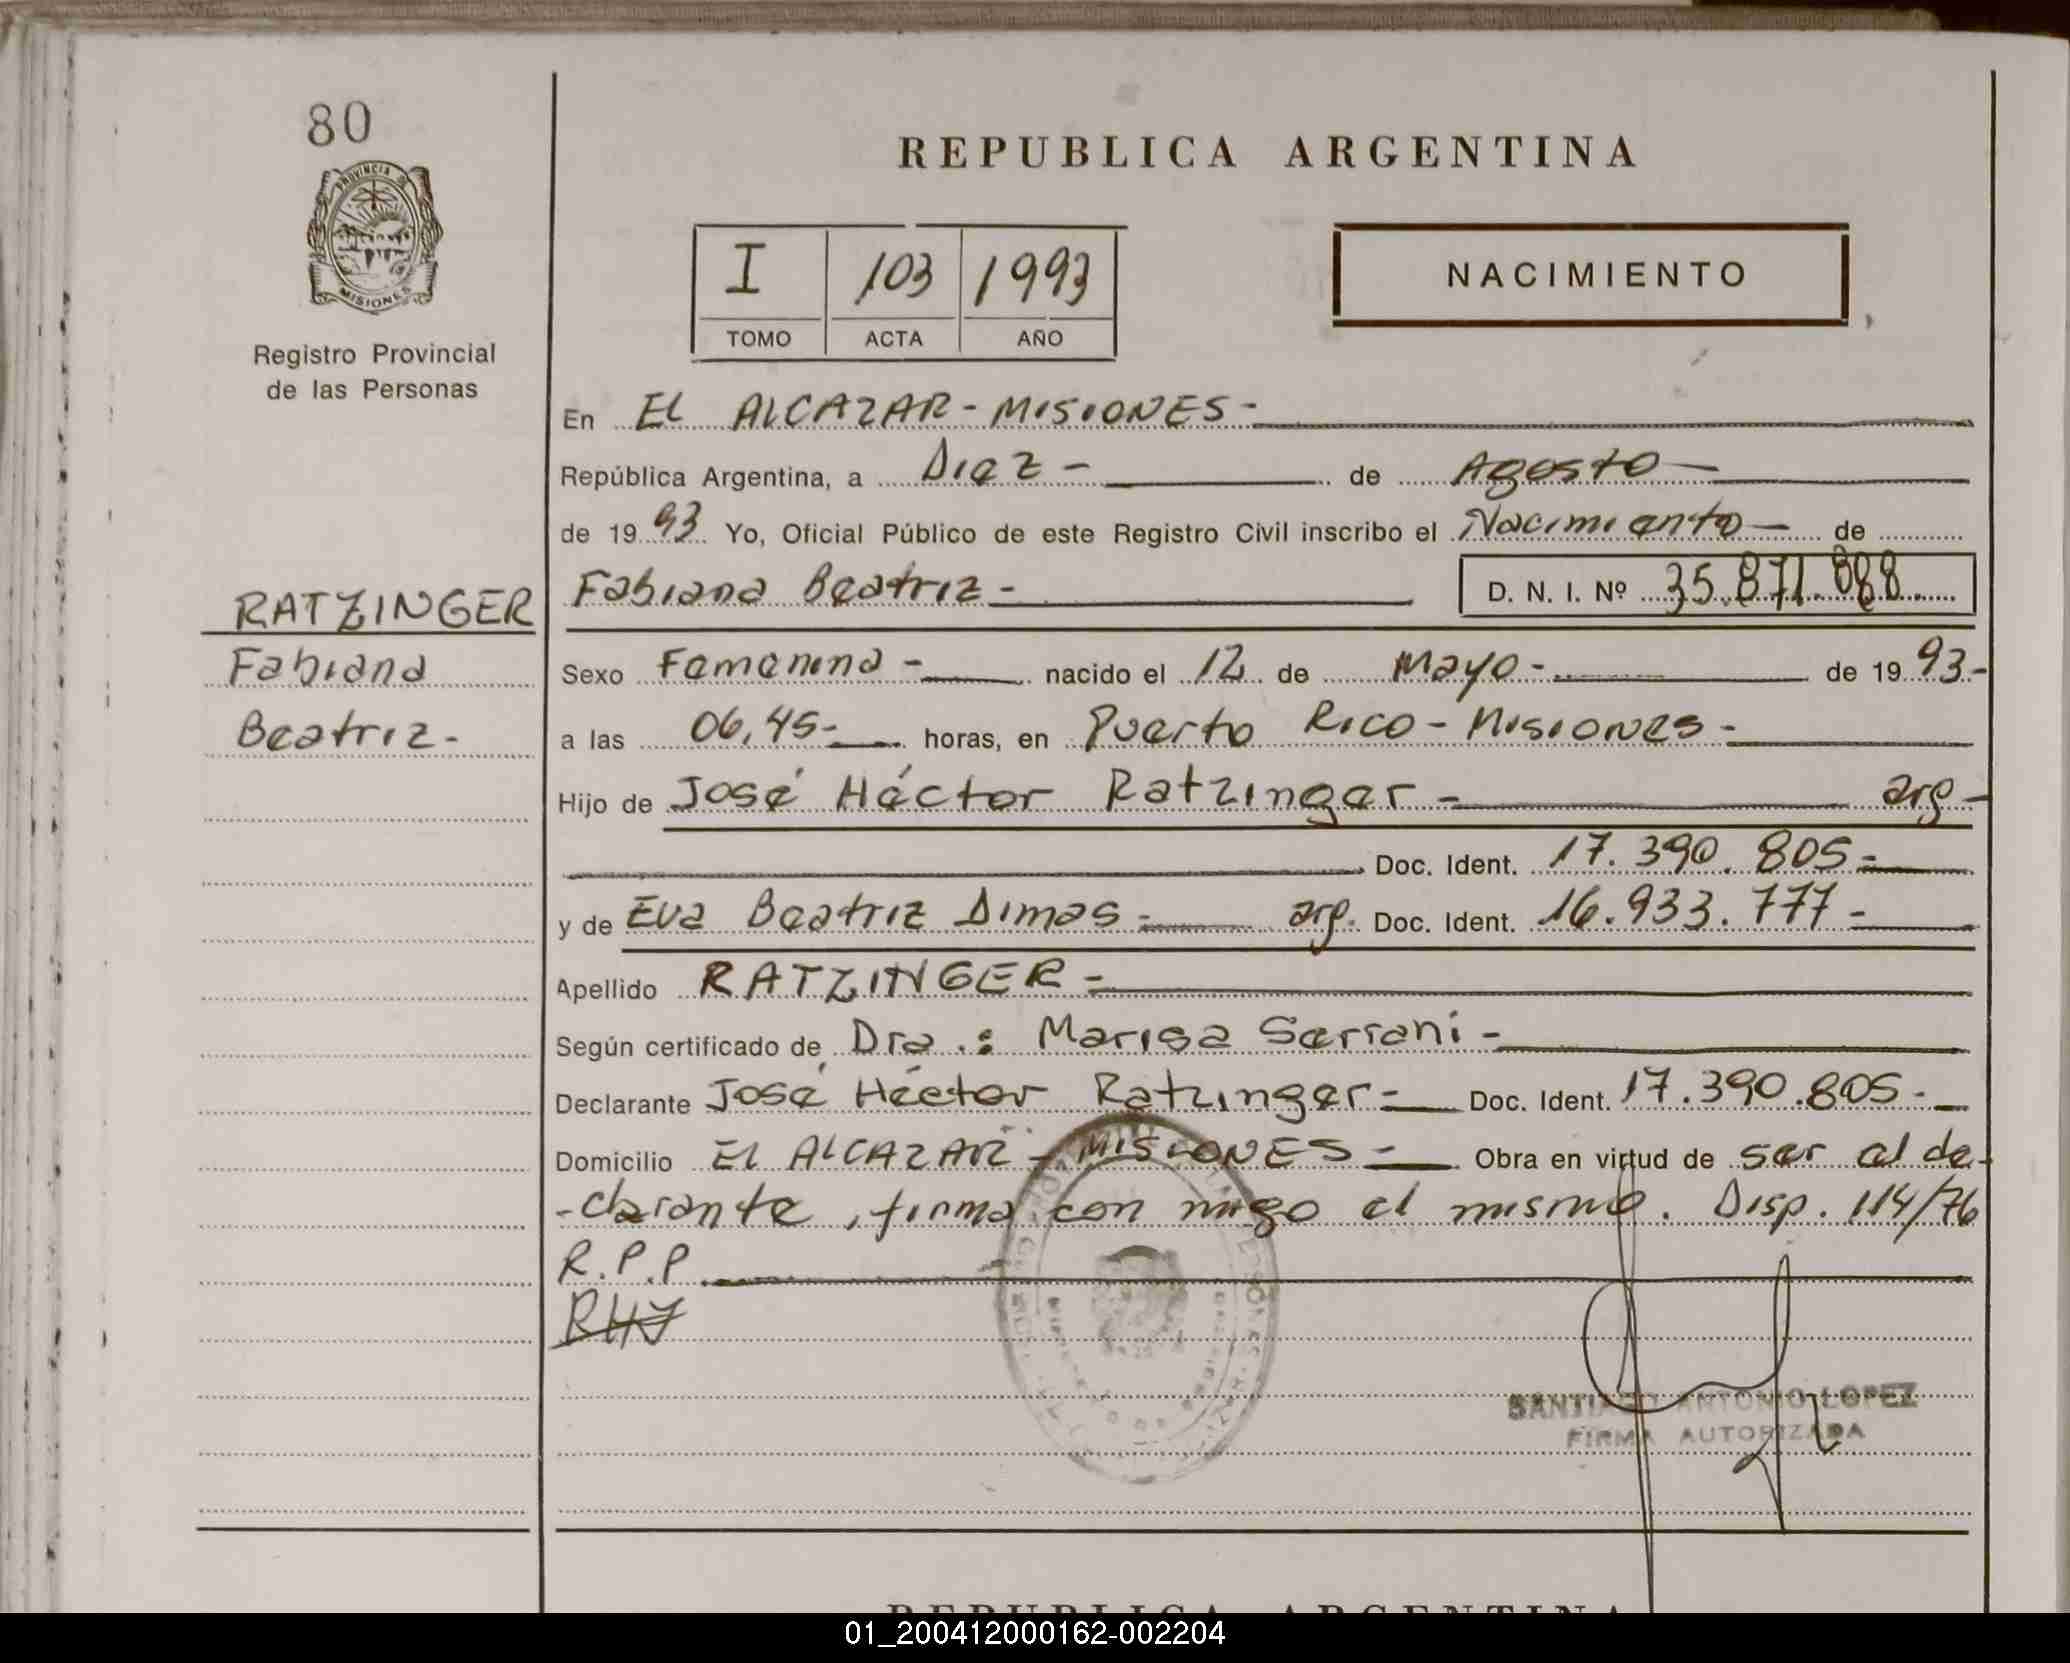 80
PROVINCIA DE
MISIONES
Registro Provincial
de las Personas
RATZINGER
Fabiana
Beatriz-
REPUBLICA ARGENTINA
I 103 1993
TOMO ACTA AÑO
NACIMIENTO
En EL ALCAZAR - MISIONES -
República Argentina, a Diez - de Agosto -
de 1993 Yo, Oficial Público de este Registro Civil inscribo el Nacimiento - de
Fabiana Beatriz - D. N. I. Nº 35.871.888
Sexo Femenino - nacido el 12 de Mayo - de 1993.-
a las 06,45- horas, en Puerto Rico - Misiones -
Hijo de José Héctor Ratzinger - arg -
Doc. Ident. 17.390.805 -
y de Eva Beatriz Dimas - arg. Doc. Ident. 16.933.777 -
Apellido RATZINGER -
Según certificado de Dra.: Marisa Serrani -
Declarante José Héctor Ratzinger - Doc. Ident. 17.390.805 -
Domicilio EL ALCAZAR - MISIONES - Obra en virtud de ser el de-
-clarante, firma con migo el mismo. Disp. 114/76
R.P.P
SANTIAGO ANTONIO LOPEZ
FIRMA AUTORIZADA
REPUBLICA ARGENTINA
01_200412000162-002204